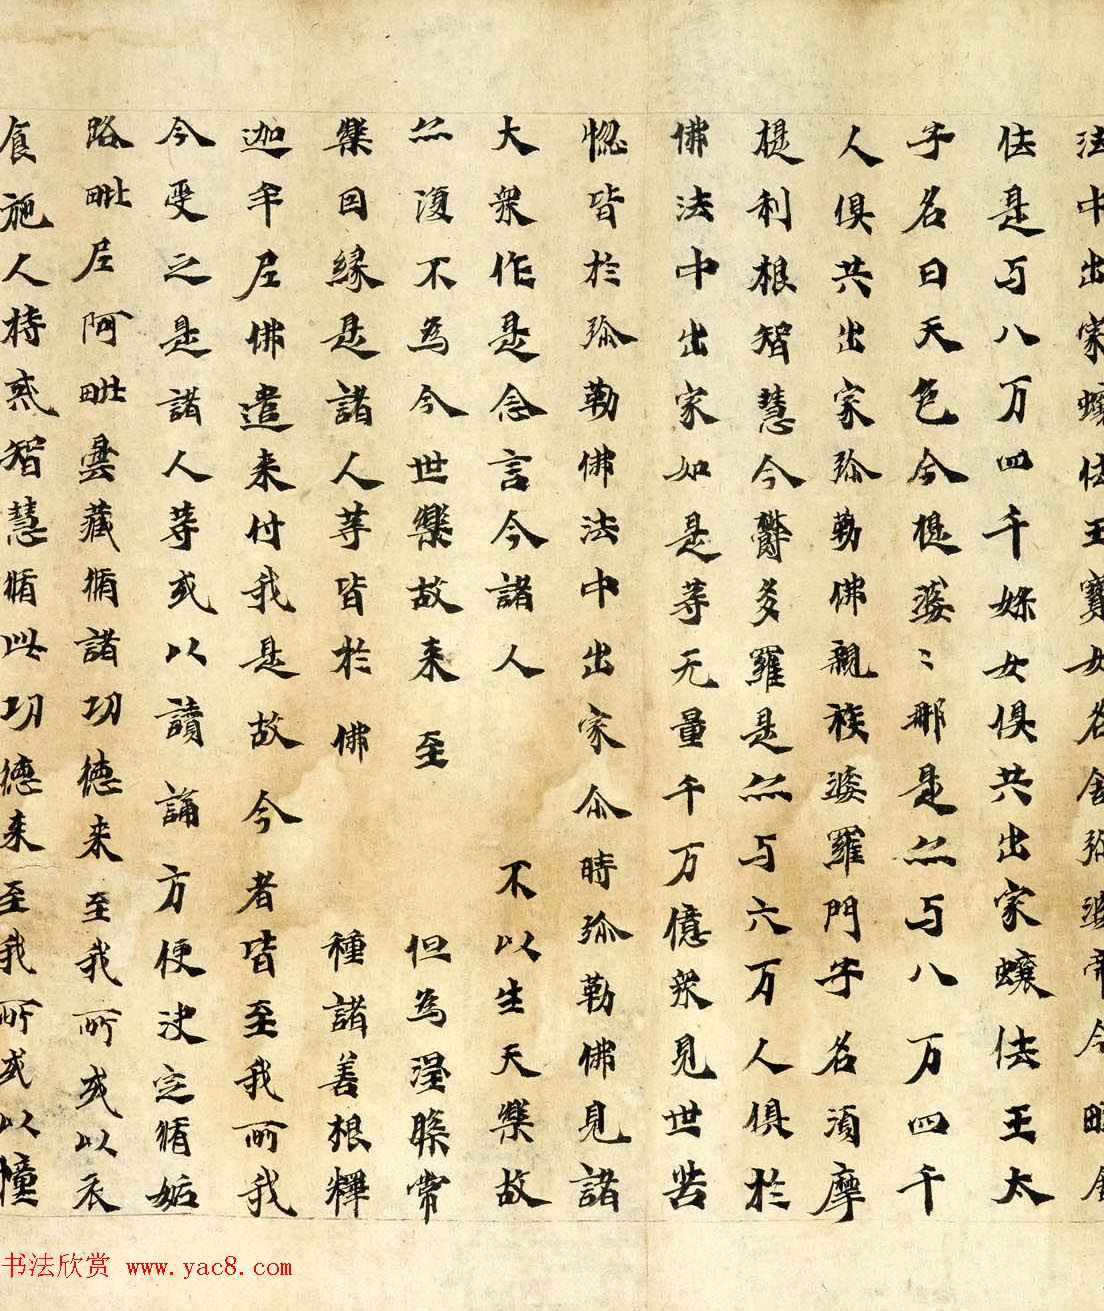 法中出家蠰佉王寶女名舍弥婆帝今毗舍
佉是与八万四千婇女俱共出家蠰佉王太
子名曰天色今提婆〻那是亦与八万四千
人俱共出家弥勒佛親族婆羅門子名須摩
提利根智慧今欝多羅是亦与六万人俱於
佛法中出家如是等无量千万億衆見世苦
惚皆於弥勒佛法中出家尒時弥勒佛見諸
大衆作是念言今諸人不以生天樂故
亦復不為今世樂故来至但為涅槃常
樂因緣是諸人等皆於佛種諸善根釋
迦牟尼佛遣来付我是故今者皆至我所我
今受之是諸人等或以讀誦方便决定脩妬
路毗尼阿毗曇藏脩諸功德来至我所或以衣
食施人持戒智慧脩此功德来至我所或以幢
书法欣赏 www.yac8.com